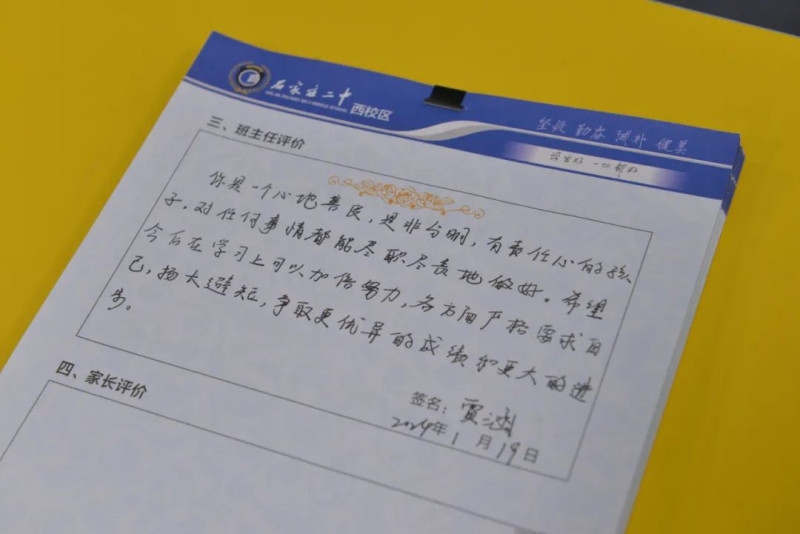 石家庄二中
西校区
坚毅 勤奋 涵朴 健美
三、班主任评价
你是一个心地善良，是非分明，有责任心的孩
子，对任何事情都能尽职尽责地做好。希望
今后在学习上可以加倍努力，各方面严格要求自
己，扬长避短，争取更优异的成绩和更大的进
步。
签名：贾涵
2024年1月19日
四、家长评价